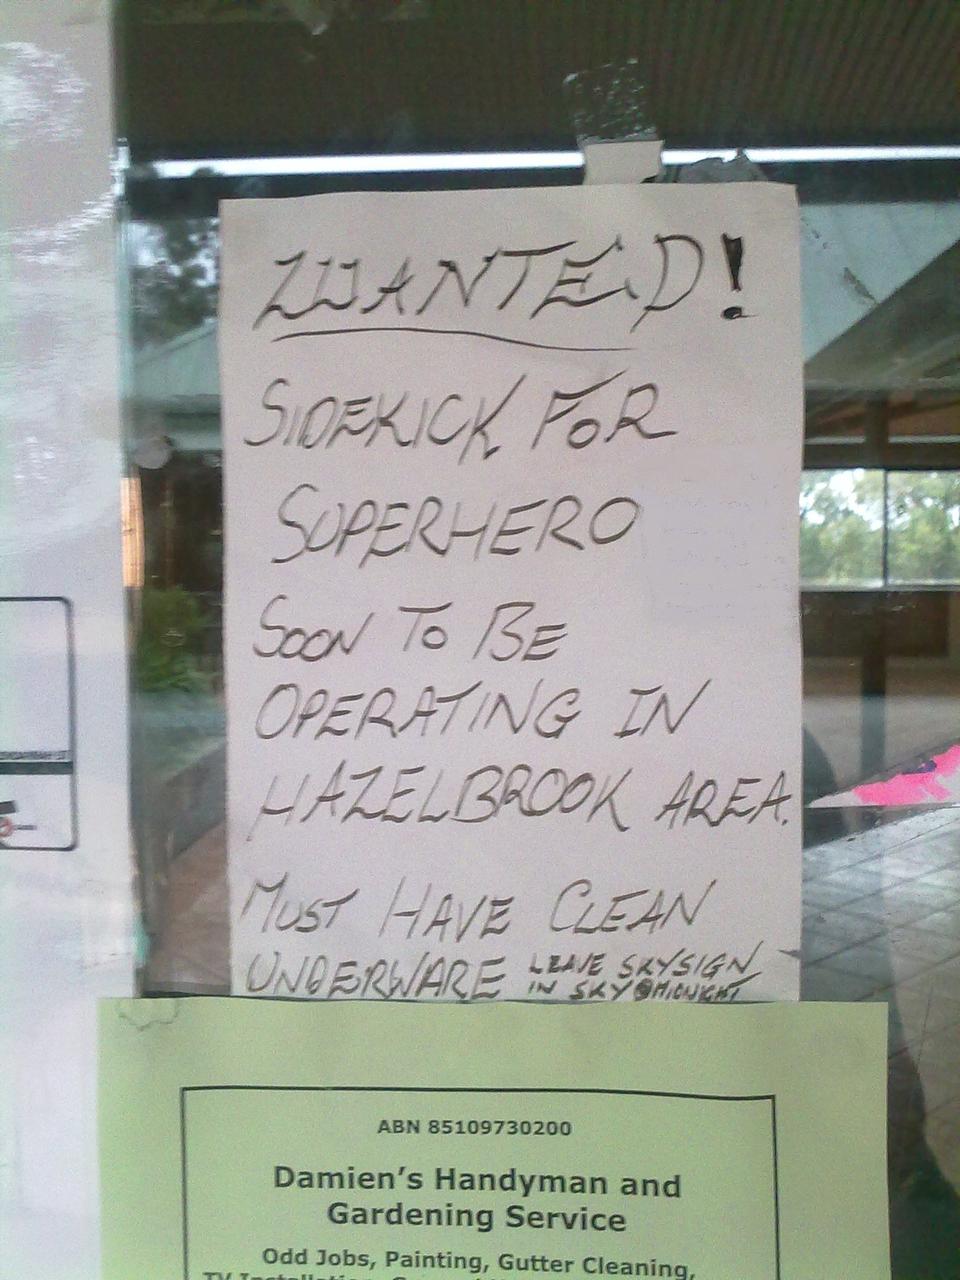 WANTED!
SIDEKICK FOR
SUPERHERO
SOON TO BE
OPERATING IN
HAZELBROOK AREA.
MUST HAVE CLEAN
UNDERWARE LEAVE SKYSIGN
IN SKY @ MIDNIGHT
ABN 85109730200
Damien's Handyman and
Gardening Service
Odd Jobs, Painting, Gutter Cleaning,
TV Installation,